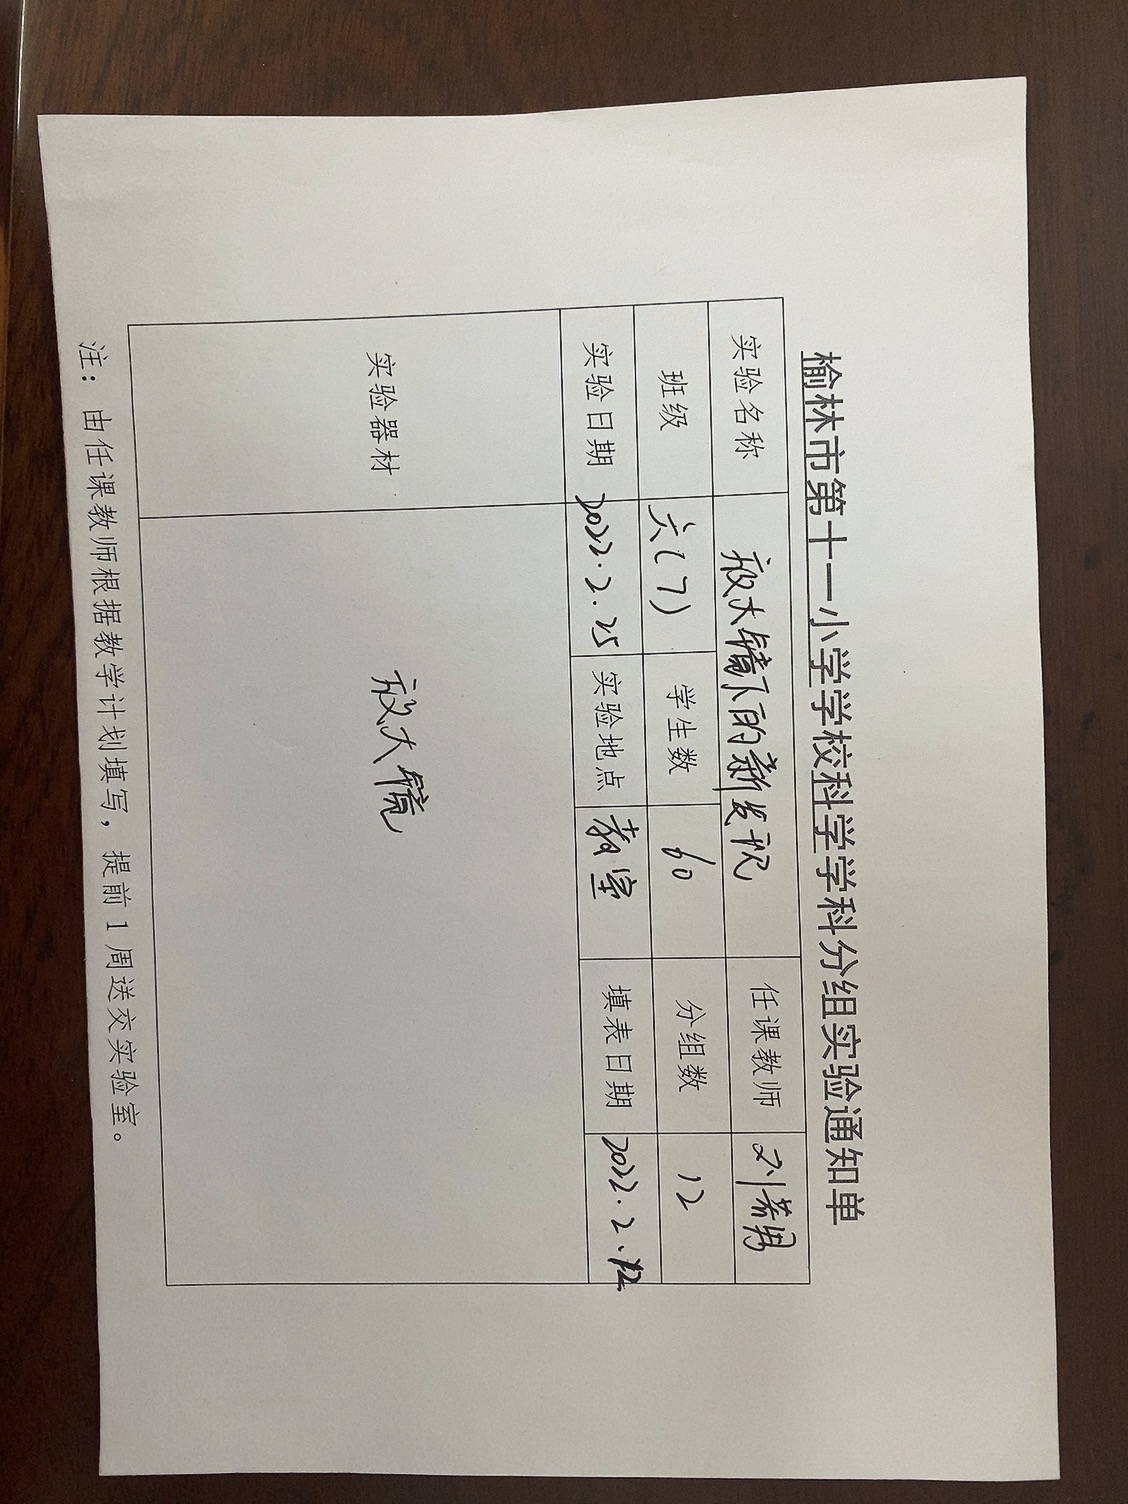 榆林市第十一小学学校科学学科分组实验通知单
实验名称 放大镜下的新发现 任课教师
班级 六(7) 学生数 60 分组数 12
实验日期 2022.2.25 实验地点 教室 填表日期 2022.2.
实验器材 放大镜
注：由任课教师根据教学计划填写，提前1周送交实验室。